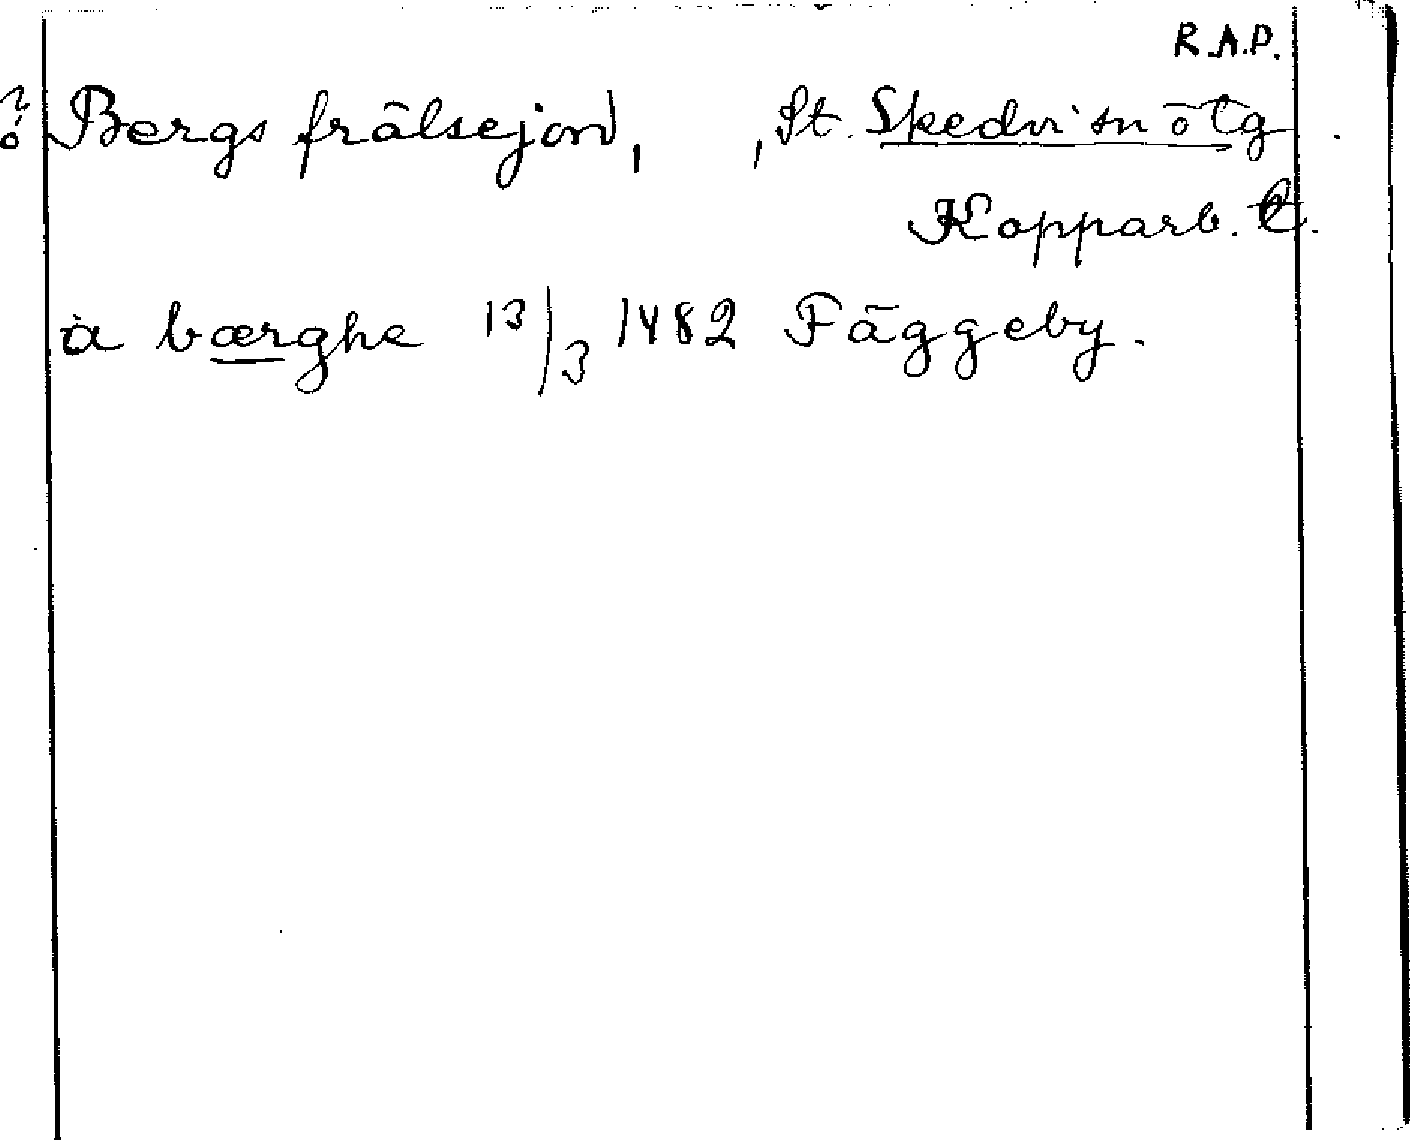 R.A.P.
? Bergs frälsejord, , St. Skedvi sn ötg.
ó
Kopparb. L.
à bærghe 13/3 1482 Fäggeby.